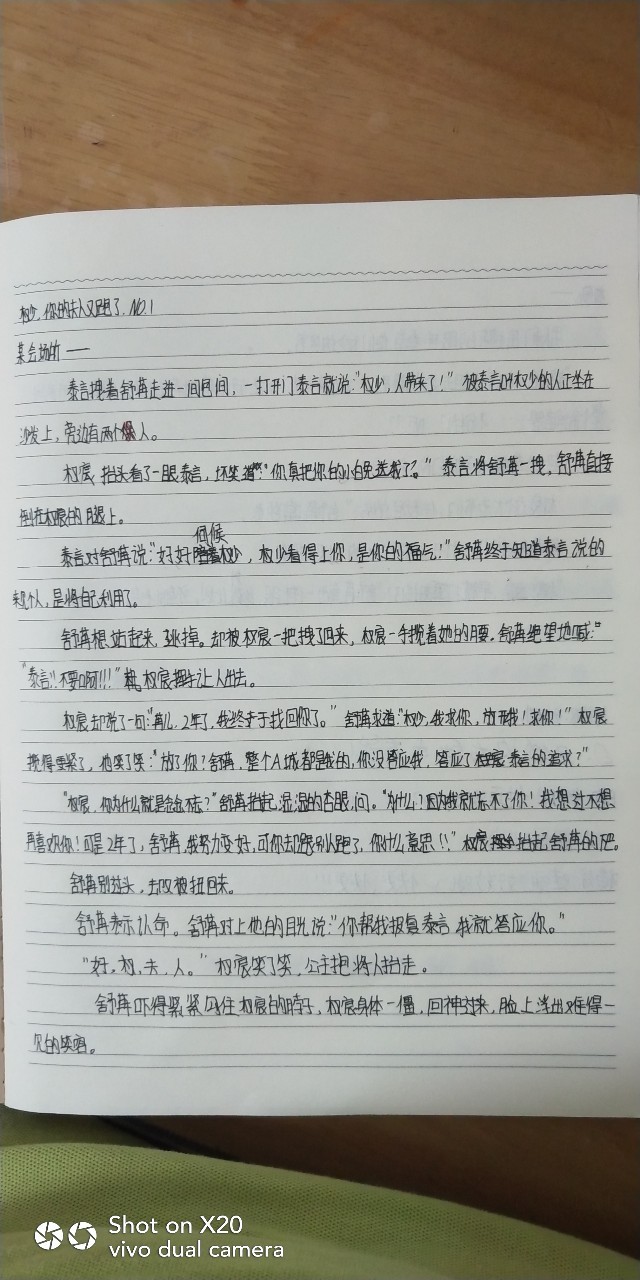 权少,你的夫人又跑了 NO.1
某会场的——
泰言拽着舒苒走进一间包间,一打开门泰言就说:"权少,人带来了!" 被泰言叫权少的人正坐在
沙发上,旁边有两个保人。
权宸 抬头看了一眼泰言,坏笑道:"你真把你的小白兔送我了?" 泰言将舒苒一拽,舒苒直接
倒在权宸的腿上。
伺候
泰言对舒苒说:"好好陪着权少,权少看得上你,是你的福气!" 舒苒终于知道泰言说的
来见个人,是将自己利用了。
舒苒想站起来,逃掉。却被权宸一把拽了回来,权宸一手揽着她的腰。舒苒绝望地喊:"
"泰言!!不要啊!!!" 权宸挥手让人出去。
权宸却说了一句:"苒儿,2年了,我终于找回你了。" 舒苒求道:"权少,我求你,放开我!求你!" 权宸
揽得更紧了,他笑了笑:"放了你?舒苒,整个A城都是我的,你没答应我,答应了泰言的追求?"
"权宸,你为什么就是念念不忘?" 舒苒抬起湿湿的杏眼,问。"为什么?因为我就忘不了你!我想过不想
再喜欢你!可是2年了,舒苒,我努力变好,可你却跟别人跑了,你什么意思!!" 权宸抬起舒苒的下巴。
舒苒别过头,却又被扭回来。
舒苒表示认命。舒苒对上他的目光说:"你帮我报复泰言,我就答应你。"
"好,权,夫,人。" 权宸笑了笑,公主抱将人抬走。
舒苒吓得紧紧勾住权宸的脖子,权宸身体一僵,回神过来,脸上浮出难得一
见的笑容。
Shot on X20
vivo dual camera